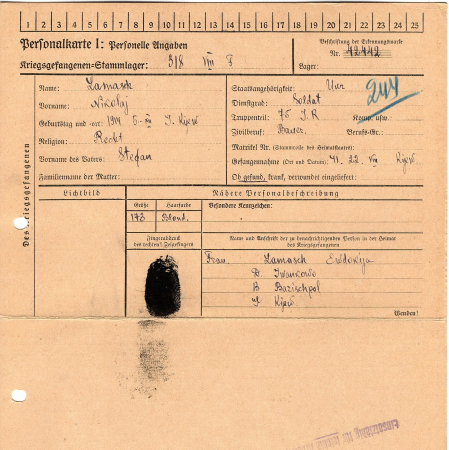 1 2 3 4 5 6 7 8 9 10 11 12 13 14 15 16 17 18 19 20 21 22 23 24 25
Personalkarte I: Personelle Angaben
Beschriftung der Erkennungsmarke
Nr. 42442
Kriegsgefangenen=Stammlager: 318 VIII F
Lager:
Des Kriegsgefangenen
Name: Lamasch
Vorname: Nikolaj
Geburtstag und =ort: 1914 5-XII
Religion:
Vorname des Vaters: Stefan
Familienname der Mutter:
Staatsangehörigkeit:
Dienstgrad: Soldat
Truppenteil: 75 I.R
Zivilberuf: Bauer. Berufs=Gr.:
Matrikel Nr. (Stammrolle des Heimatstaates):
Gefangennahme (Ort und Datum): 41. 22. VIII Kijew
Ob gesund, krank, verwundet eingeliefert:
244
Lichtbild
Nähere Personalbeschreibung
Größe
Haarfarbe
173
Blond.
Besondere Kennzeichen:
Fingerabdruck
des rechten! Zeigefingers
Name und Anschrift der zu benachrichtigenden Person in der Heimat
des Kriegsgefangenen
Frau Lamasch Ewdokija
D. Iwankowo
B Barischpol
G Kijew
Wenden!